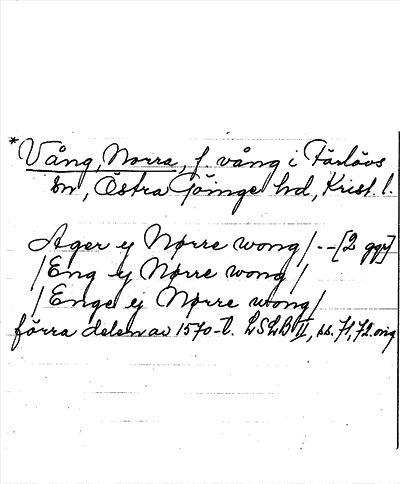 * Vång, Norra, f. vång i Färlövs
sn, Östra Göinge hd, Krist. l.
Ager ej Nørre wong/--[2 ggr]
/Eng ej Nørre wong/
/Enge ej Nørre wong/
förra delen av 1570-t. LSLB II, ss. 71, 72. orig